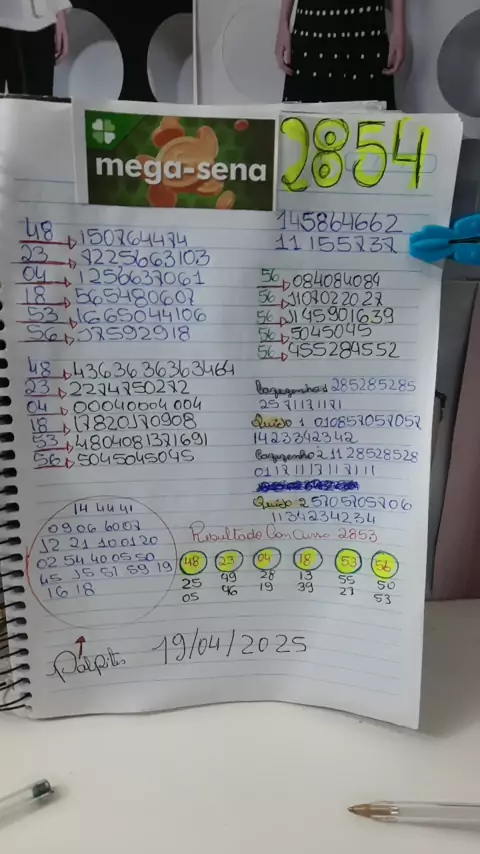 mega-sena
2854
145864662
11155737
48 150764474
23 7225663103
04 1256637061
18 565480607
53 1665044106
56 37592918
56 084084084
56 1107022027
56 1145901639
56 5045045
56 455284552
48 4363636363464
23 2274750272
04 00040004004
18 17820170908
53 4804081371691
56 5045045045
285285285
2571171171
1 010857057057
1423342342
2 11 28528528
01171117117111
2 5705705706
1134234234
14 44 41
09 06 60 07
12 21 10 01 20
02 54 40 05 50
45 15 51 59 19
16 18
Resultado Concurso 2853
48 23 04 18 53 56
25 49 28 13 55 50
05 46 19 39 27 53
Palpite 19/04/2025